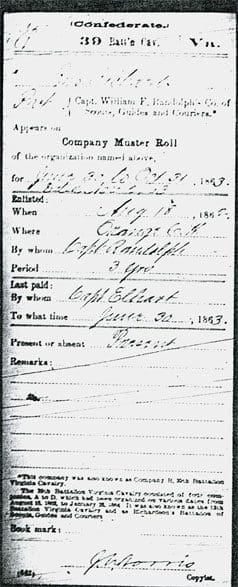 (Confederate.)
39 Batt'n Cav. Va.
Pvt., Capt. William F. Randolph's Co. of
Scouts, Guides and Couriers.*
Appears on
Company Muster Roll
of the organization named above,
for June 30 to Oct 31, 1863.
Enlisted:
When Aug 18, 186
Where Orange C.H.
By whom Capt Randolph
Period 3 yrs
Last paid:
By whom Capt Elhart
To what time June 30, 1863.
Present or absent Present
Remarks:
*This company was also known as Company 25th Battalion
Virginia Cavalry.
The 39th Battalion Virginia Cavalry consisted of four com-
panies, A to D, which had been organized on various dates from
1862, to January 1864. It was also known as the 13th
Battalion Virginia Cavalry and as Richardson's Battalion of
Scouts, Guides and Couriers
Book mark:
Morris
(642)
Copyist.